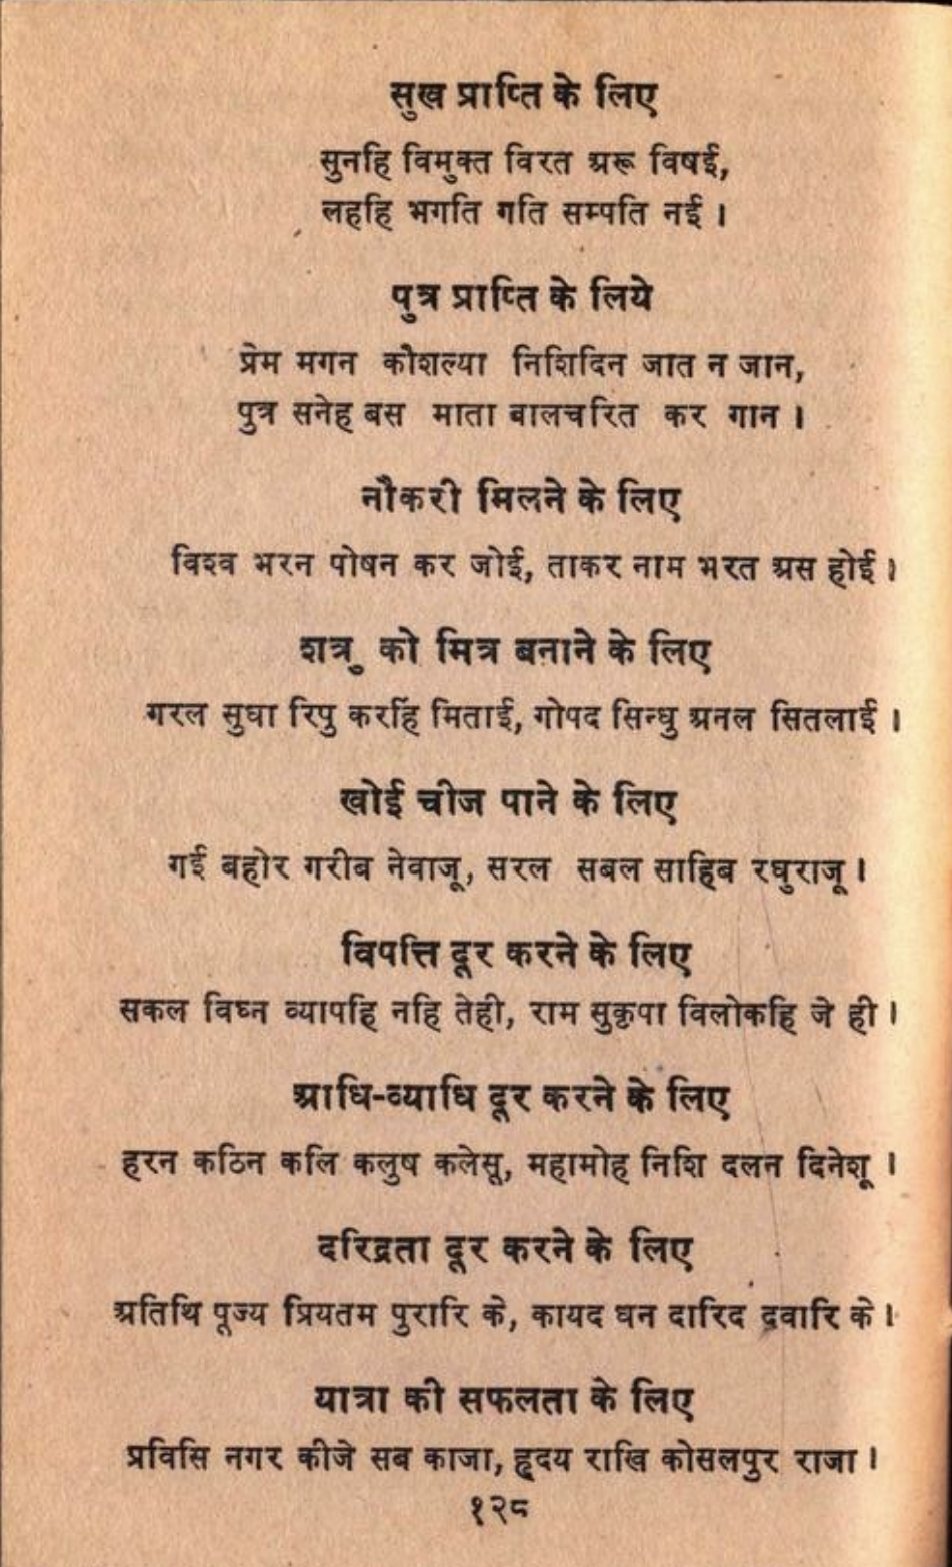 सुख प्राप्ति के लिए
सुनहि विमुक्त विरत अरू विषई,
लहहि भगति गति सम्पति नई ।
पुत्र प्राप्ति के लिये
प्रेम मगन कौशल्या निशिदिन जात न जान,
पुत्र सनेह बस माता बालचरित कर गान ।
नौकरी मिलने के लिए
विश्व भरन पोषन कर जोई, ताकर नाम भरत अस होई ।
शत्रु को मित्र बनाने के लिए
गरल सुघा रिपु करहिं मिताई, गोपद सिन्धु अनल सितलाई ।
खोई चीज पाने के लिए
गई बहोर गरीब नेवाजू, सरल सबल साहिब रघुराजू ।
विपत्ति दूर करने के लिए
सकल विघ्न व्यापहि नहि तेही, राम सुकृपा विलोकहि जे ही ।
आधि-व्याधि दूर करने के लिए
हरन कठिन कलि कलुष कलेसू, महामोह निशि दलन दिनेशू ।
दरिद्रता दूर करने के लिए
अतिथि पूज्य प्रियतम पुरारि के, कायद घन दारिद दवारि के ।
यात्रा की सफलता के लिए
प्रविसि नगर कीजे सब काजा, हृदय राखि कोसलपुर राजा ।
१२८